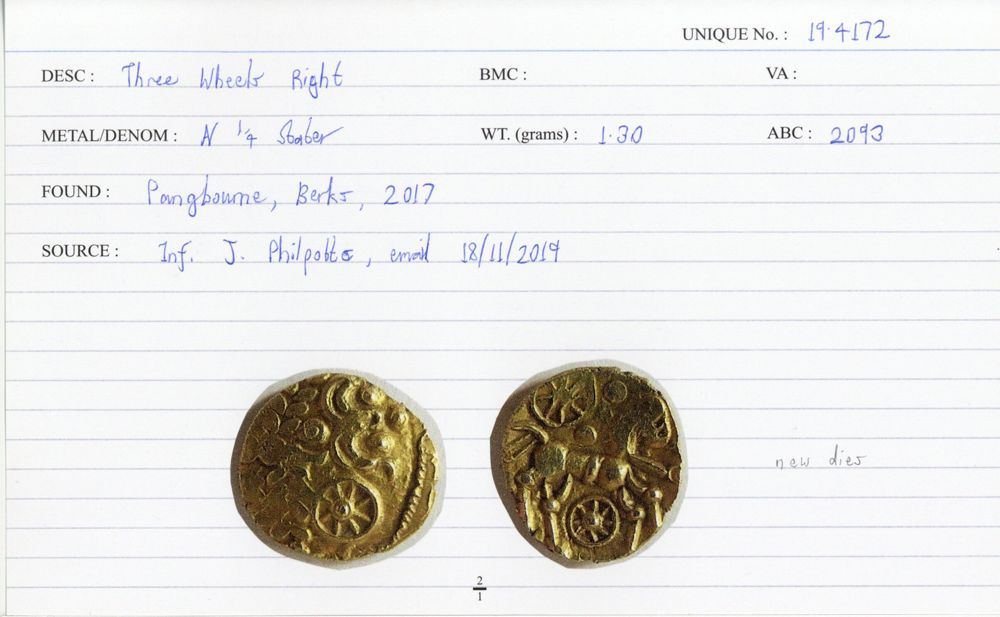 UNIQUE No. : 19.4172
DESC : Three Wheels Right BMC : VA :
METAL/DENOM : N 1/4 Stater WT. (grams) : 1.30 ABC : 2093
FOUND : Pangbourne, Berks, 2017
SOURCE : Inf. J. Philpotts, email 18/11/2019
new dies
2/1